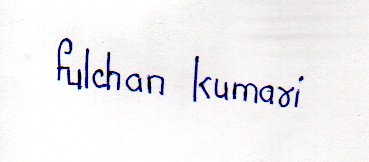 fulchan kumari